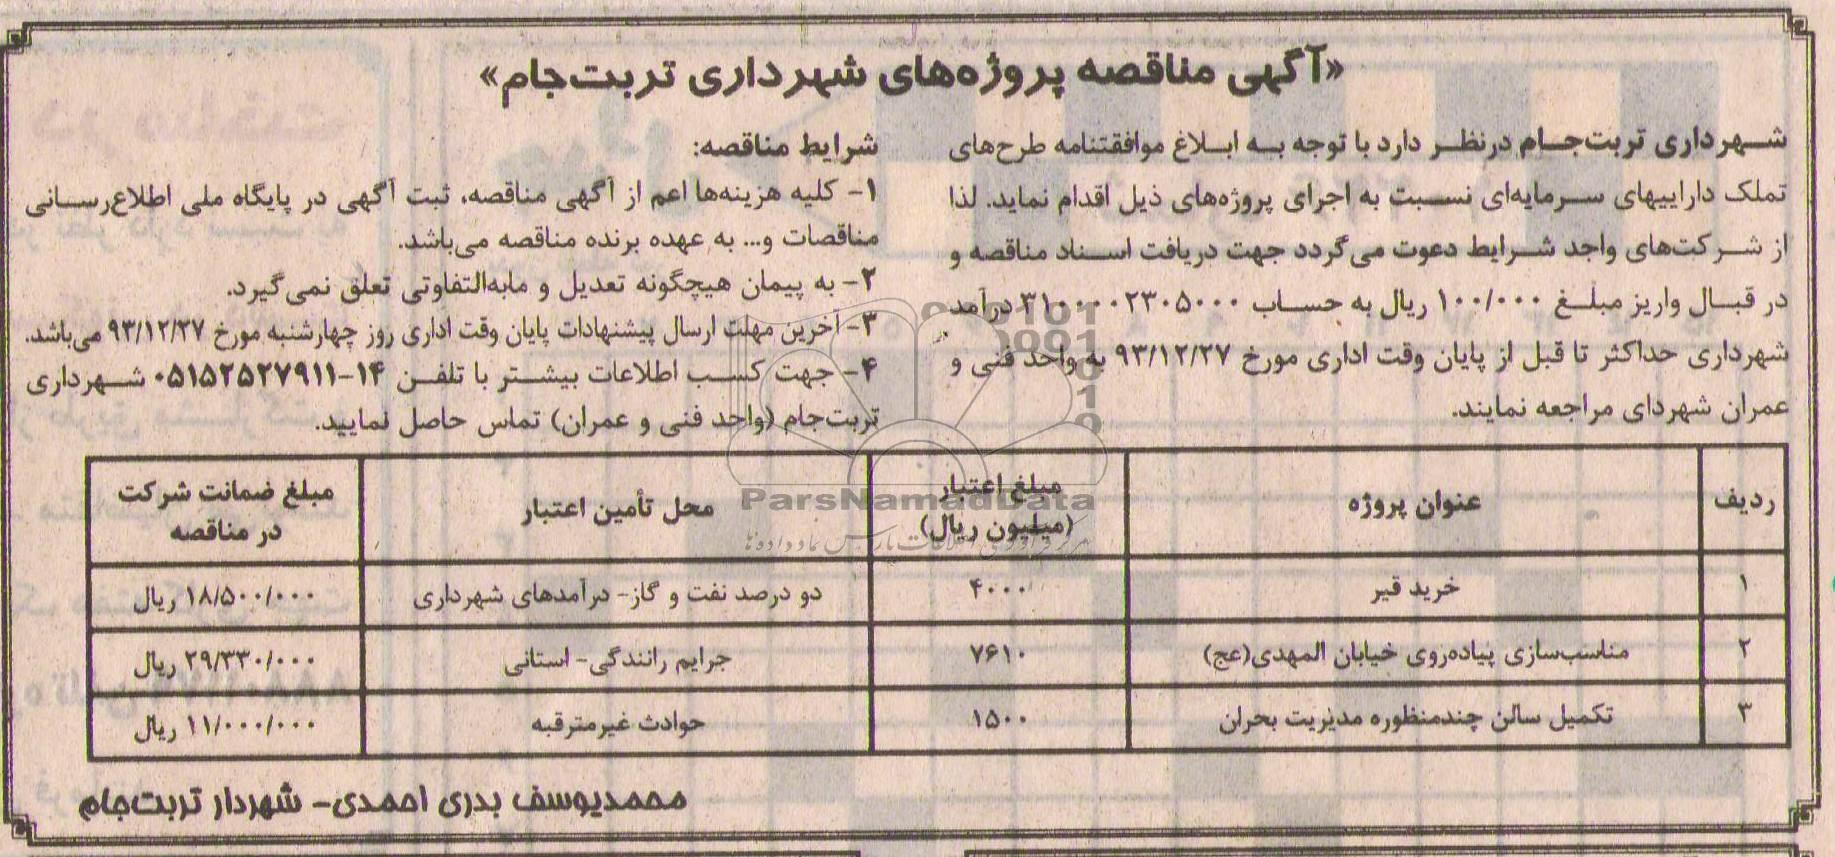 «آگهی مناقصه پروژه‌های شهرداری تربت‌جام»
شهرداری تربت‌جام درنظر دارد با توجه به ابلاغ موافقتنامه طرح‌های
تملک داراییهای سرمایه‌ای نسبت به اجرای پروژه‌های ذیل اقدام نماید. لذا
از شرکت‌های واجد شرایط دعوت می‌گردد جهت دریافت اسناد مناقصه و
در قبال واریز مبلغ ۱۰۰/۰۰۰ ریال به حساب ۳۱۰۰۰۰۲۳۰۵۰۰۰ درآمد
شهرداری حداکثر تا قبل از پایان وقت اداری مورخ ۹۳/۱۲/۲۷ به واحد فنی و
عمران شهردای مراجعه نمایند.
شرایط مناقصه:
۱- کلیه هزینه‌ها اعم از آگهی مناقصه، ثبت آگهی در پایگاه ملی اطلاع‌رسانی
مناقصات و... به عهده برنده مناقصه می‌باشد.
۲- به پیمان هیچگونه تعدیل و مابه‌التفاوتی تعلق نمی‌گیرد.
۳- آخرین مهلت ارسال پیشنهادات پایان وقت اداری روز چهارشنبه مورخ ۹۳/۱۲/۲۷ می‌باشد.
۴- جهت کسب اطلاعات بیشتر با تلفن ۱۴-۰۵۱۵۲۵۲۷۹۱۱ شهرداری
تربت‌جام (واحد فنی و عمران) تماس حاصل نمایید.
ردیف عنوان پروژه مبلغ اعتبار (میلیون ریال) محل تأمین اعتبار مبلغ ضمانت شرکت در مناقصه
۱ خرید قیر ۴۰۰۰ دو درصد نفت و گاز- درآمدهای شهرداری ۱۸/۵۰۰/۰۰۰ ریال
۲ مناسب‌سازی پیاده‌روی خیابان المهدی(عج) ۷۶۱۰ جرایم رانندگی- استانی ۲۹/۳۳۰/۰۰۰ ریال
۳ تکمیل سالن چندمنظوره مدیریت بحران ۱۵۰۰ حوادث غیرمترقبه ۱۱/۰۰۰/۰۰۰ ریال
محمدیوسف بدری احمدی- شهردار تربت‌جام
ParsNamadData